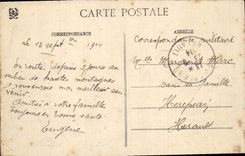 CARTE POSTALE
CORRESPONDANCE
ADRESSE
Le 13 Sept 1914
En route depuis 3 jours au
milieu de hautes montagnes
souvenir mon meilleur
Amitiés à votre famille
toujours en bonne santé
Eugène
Correspondance militaire
Mlle Marguerite Marc
dans sa famille
Herepian
Herault